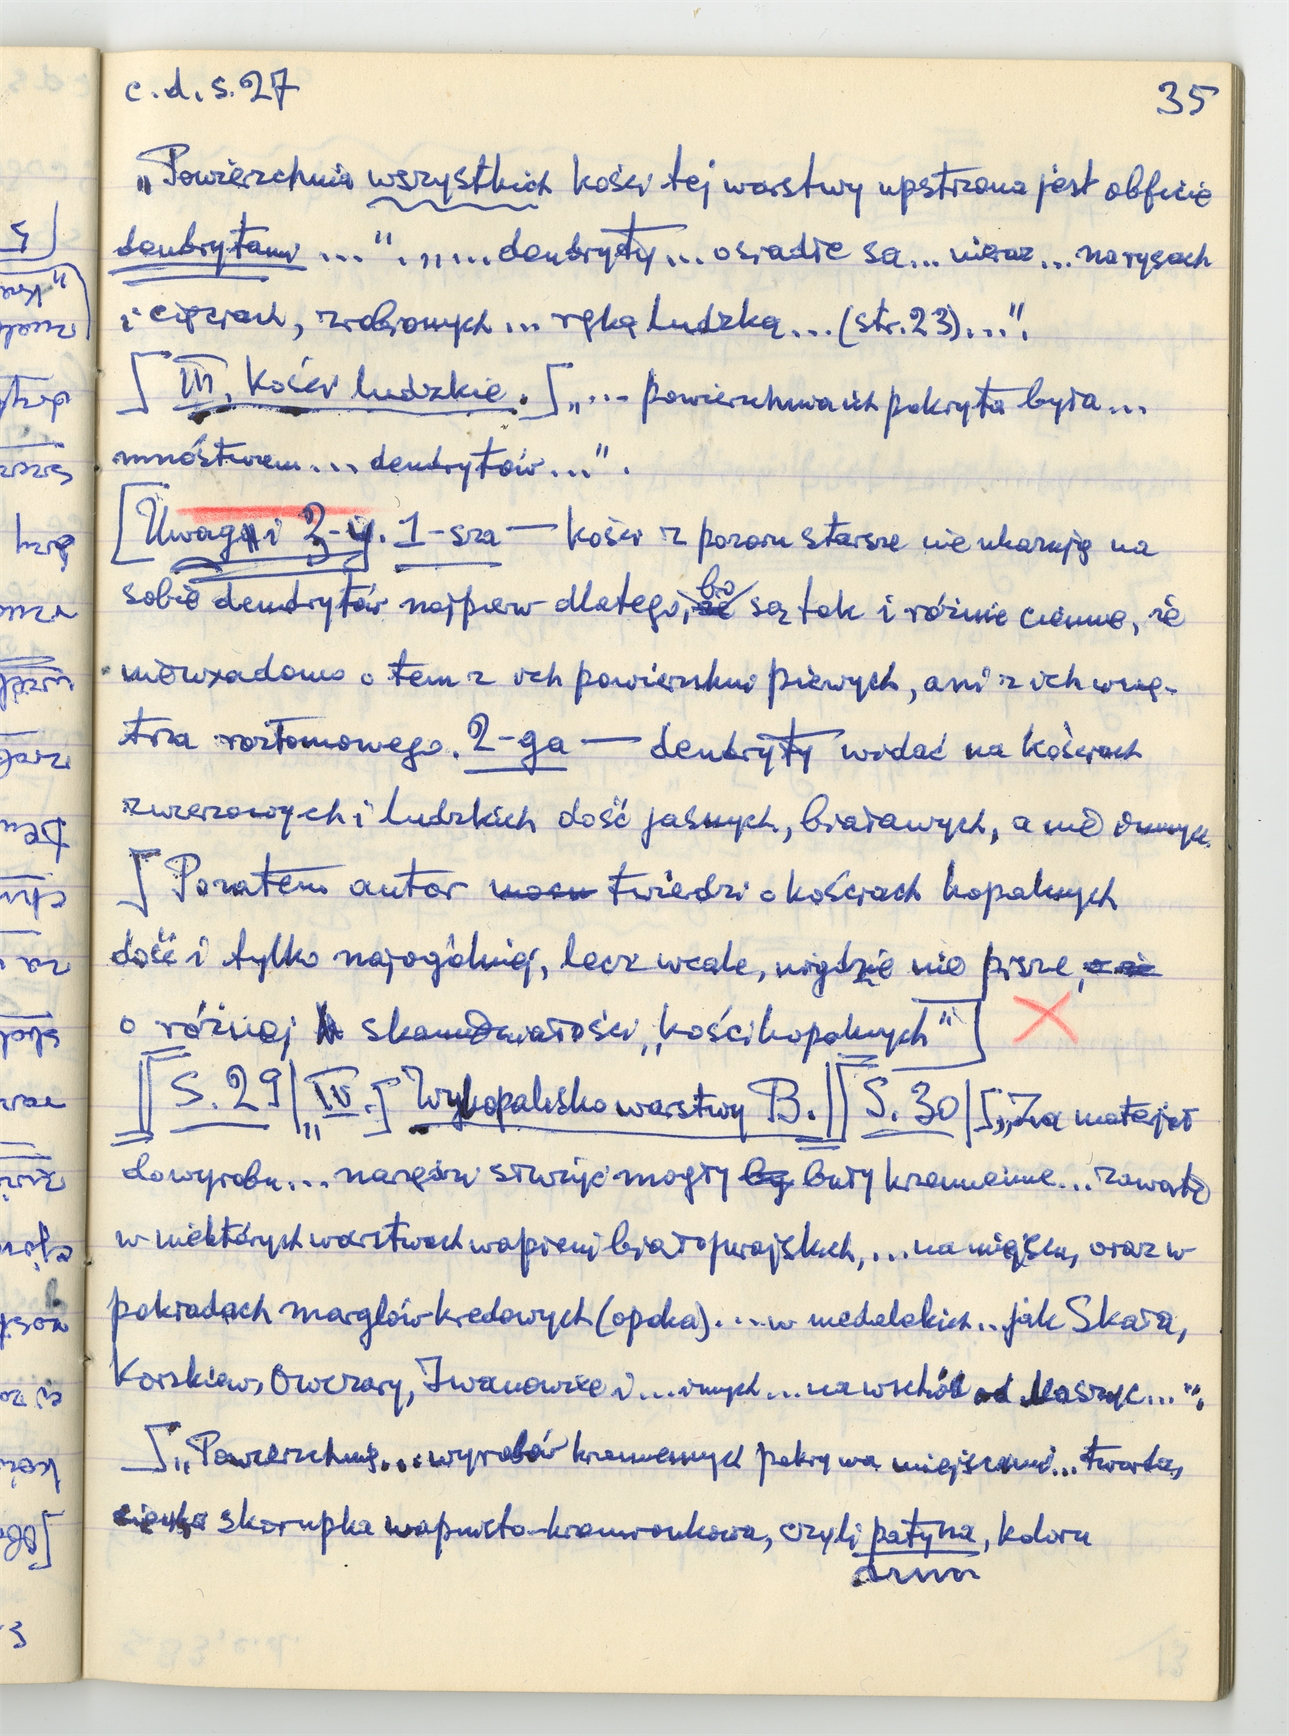 c.d. s. 27 35
„Powierzchnia wszystkich kości tej warstwy upstrzona jest obficie
dendrytami ...". „... dendryty ... osiadłe są ... nieraz ... na rysach
i cięciach, zrobionych ... ręką ludzką ... (str. 23) ...".
[III. Kości ludzkie.] „... powierzchnia ich pokryta była ...
mnóstwem ... dendrytów ...".
[Uwagi 2-ie. 1-sza — kości z pozoru starsze nie ukazują na
sobie dendrytów najpierw dlatego, bo są tak i różnie ciemne, że
niewiadomo o tem z ich powierzchni pierwych, ani z ich wnę-
trza rozłomowego. 2-ga — dendryty widać na kościach
zwierzowych i ludzkich dość jasnych, białawych, a nie
[Pozatem autor twierdzi o kościach kopalnych
dość i tylko najogólniej, lecz wcale, nigdzie nie pisze,
o różnej skamieniałości „kości kopalnych"]
[[S. 29| „IV.] Wykopalisko warstwy B.|[[S. 30| [„Za materjał
do wyrobu ... narzędzi służyć mogły buły krzemienne ... zawarte
w niektórych warstwach wapieni białojurajskich, ... na miejscu, oraz w
pokładach marglów kredowych (opoka) .... w niedalekich .. jak Skała,
Korzkiew, Owczary, Iwanowice i .... innych ... na wschód od Maszyc ...".
[„Powierzchnię ... wyrobów krzemiennych pokrywa miejscami ... twarda,
cienka skorupka wapnisto-krzemionkowa, czyli patyna, koloru